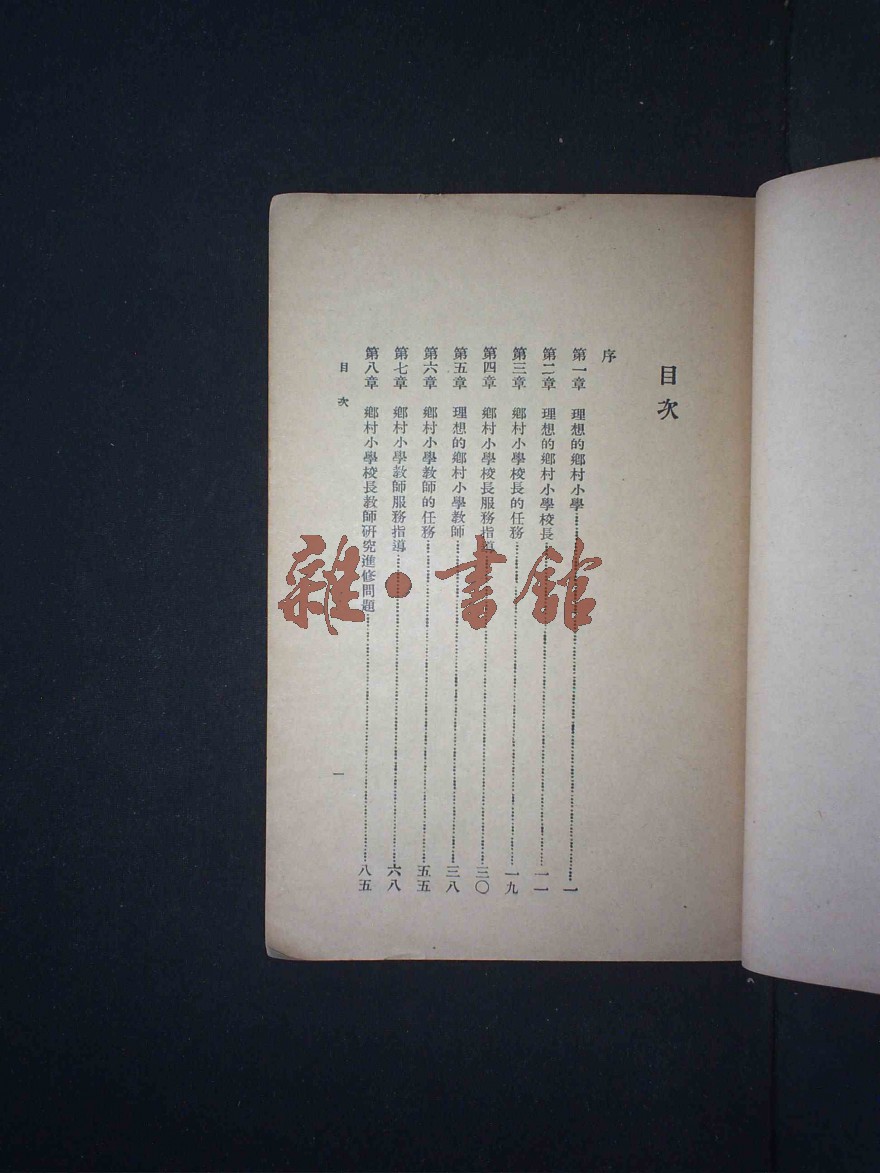 目次
序
第一章　理想的鄉村小學……一
第二章　理想的鄉村小學校長……一一
第三章　鄉村小學校長的任務……一九
第四章　鄉村小學校長服務指導……三〇
第五章　理想的鄉村小學教師……三八
第六章　鄉村小學教師的任務……五五
第七章　鄉村小學教師服務指導……六八
第八章　鄉村小學校長教師研究進修問題……八五
目次　一
雜·書館